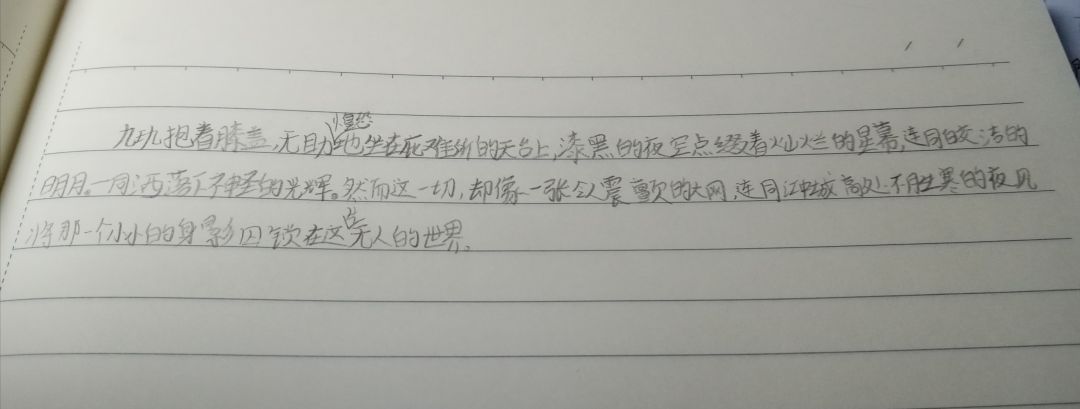 九九抱着膝盖,无助惶恐地坐在庇难所的天台上,漆黑的夜空点缀着灿烂的星幕,连同皎洁的
明月。一同洒落下轻的光辉。然而这一切,却像一张令人震颤的大网,连同江城高处不胜寒的夜风
将那一个小小的身影囚锁在这空无人的世界。